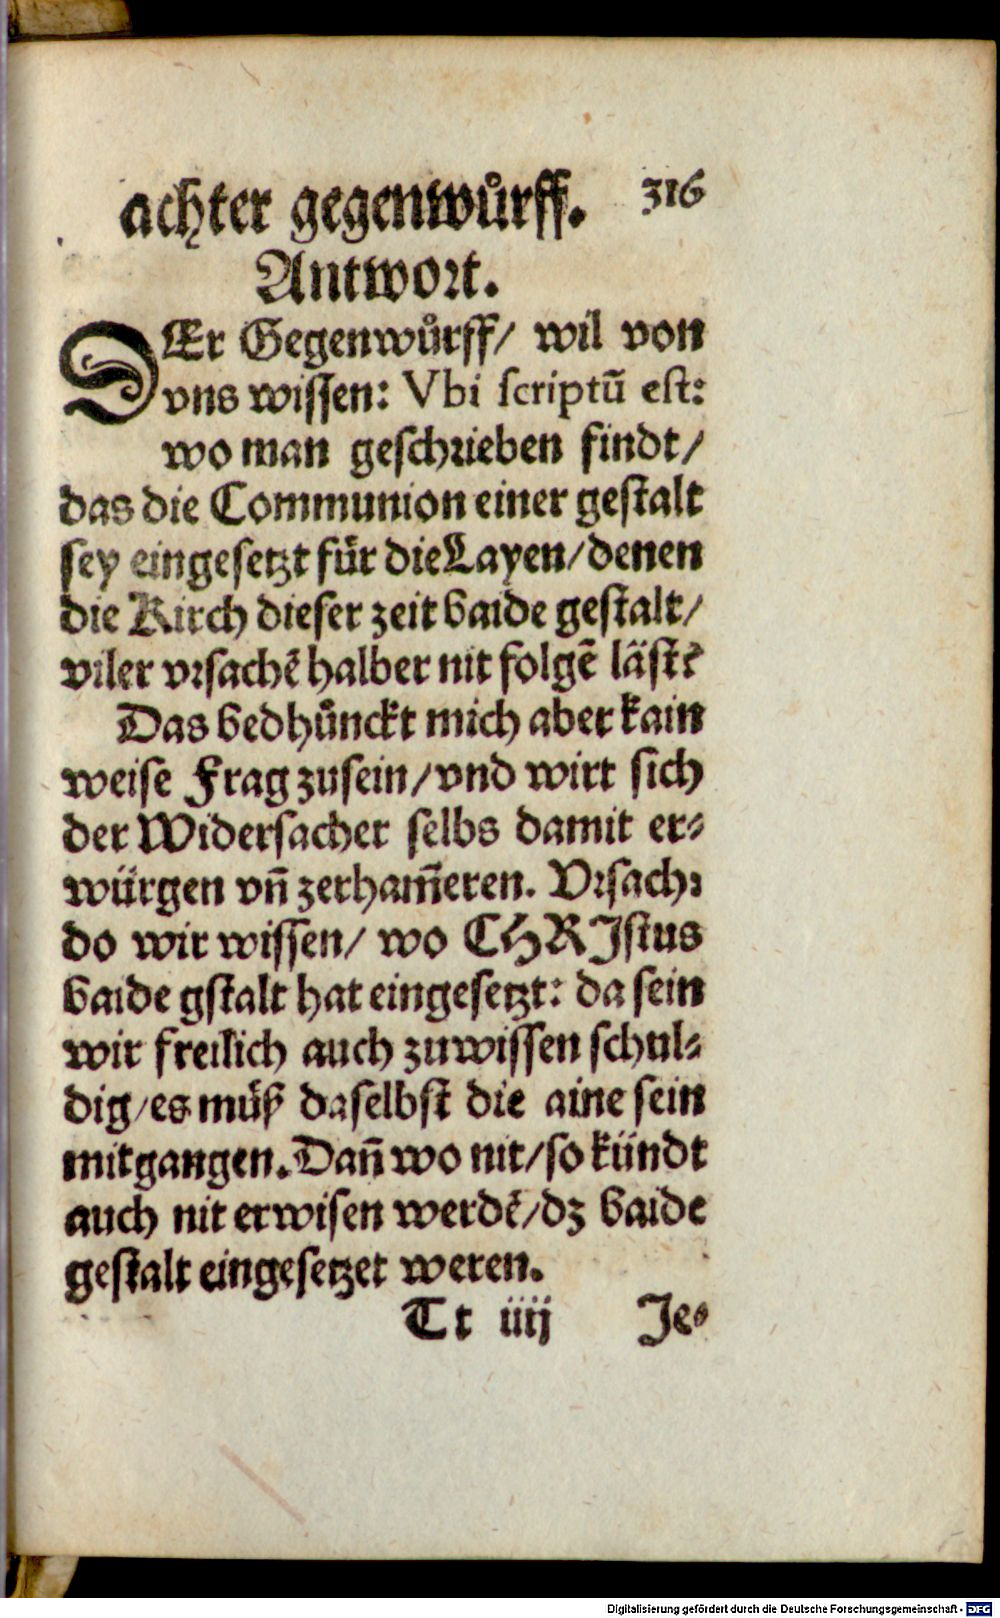 achter gegenwuͤrff. 316
Antwort.
DEr Gegenwuͤrff/ wil von
vns wissen: Vbi scriptū est:
wo man geschrieben findt/
das die Communion einer gestalt
sey eingesetzt für die Layen/denen
die Kirch dieser zeit baide gestalt/
viler vrsachē halber nit folgē läst?
Das bedhünckt mich aber kain
weise Frag zusein/vnd wirt sich
der Widersacher selbs damit er⸗
würgen vñ zerham̃eren. Vrsach:
do wir wissen/ wo CHRJstus
baide gstalt hat eingesetzt: da sein
wir freilich auch zuwissen schul⸗
dig/es müß daselbst die aine sein
mitgangen. Dañ wo nit/so kündt
auch nit erwisen werdē/dz baide
gestalt eingesetzet weren.
Tt iiij Je⸗
Digitalisierung gefördert durch die Deutsche Forschungsgemeinschaft - DFG